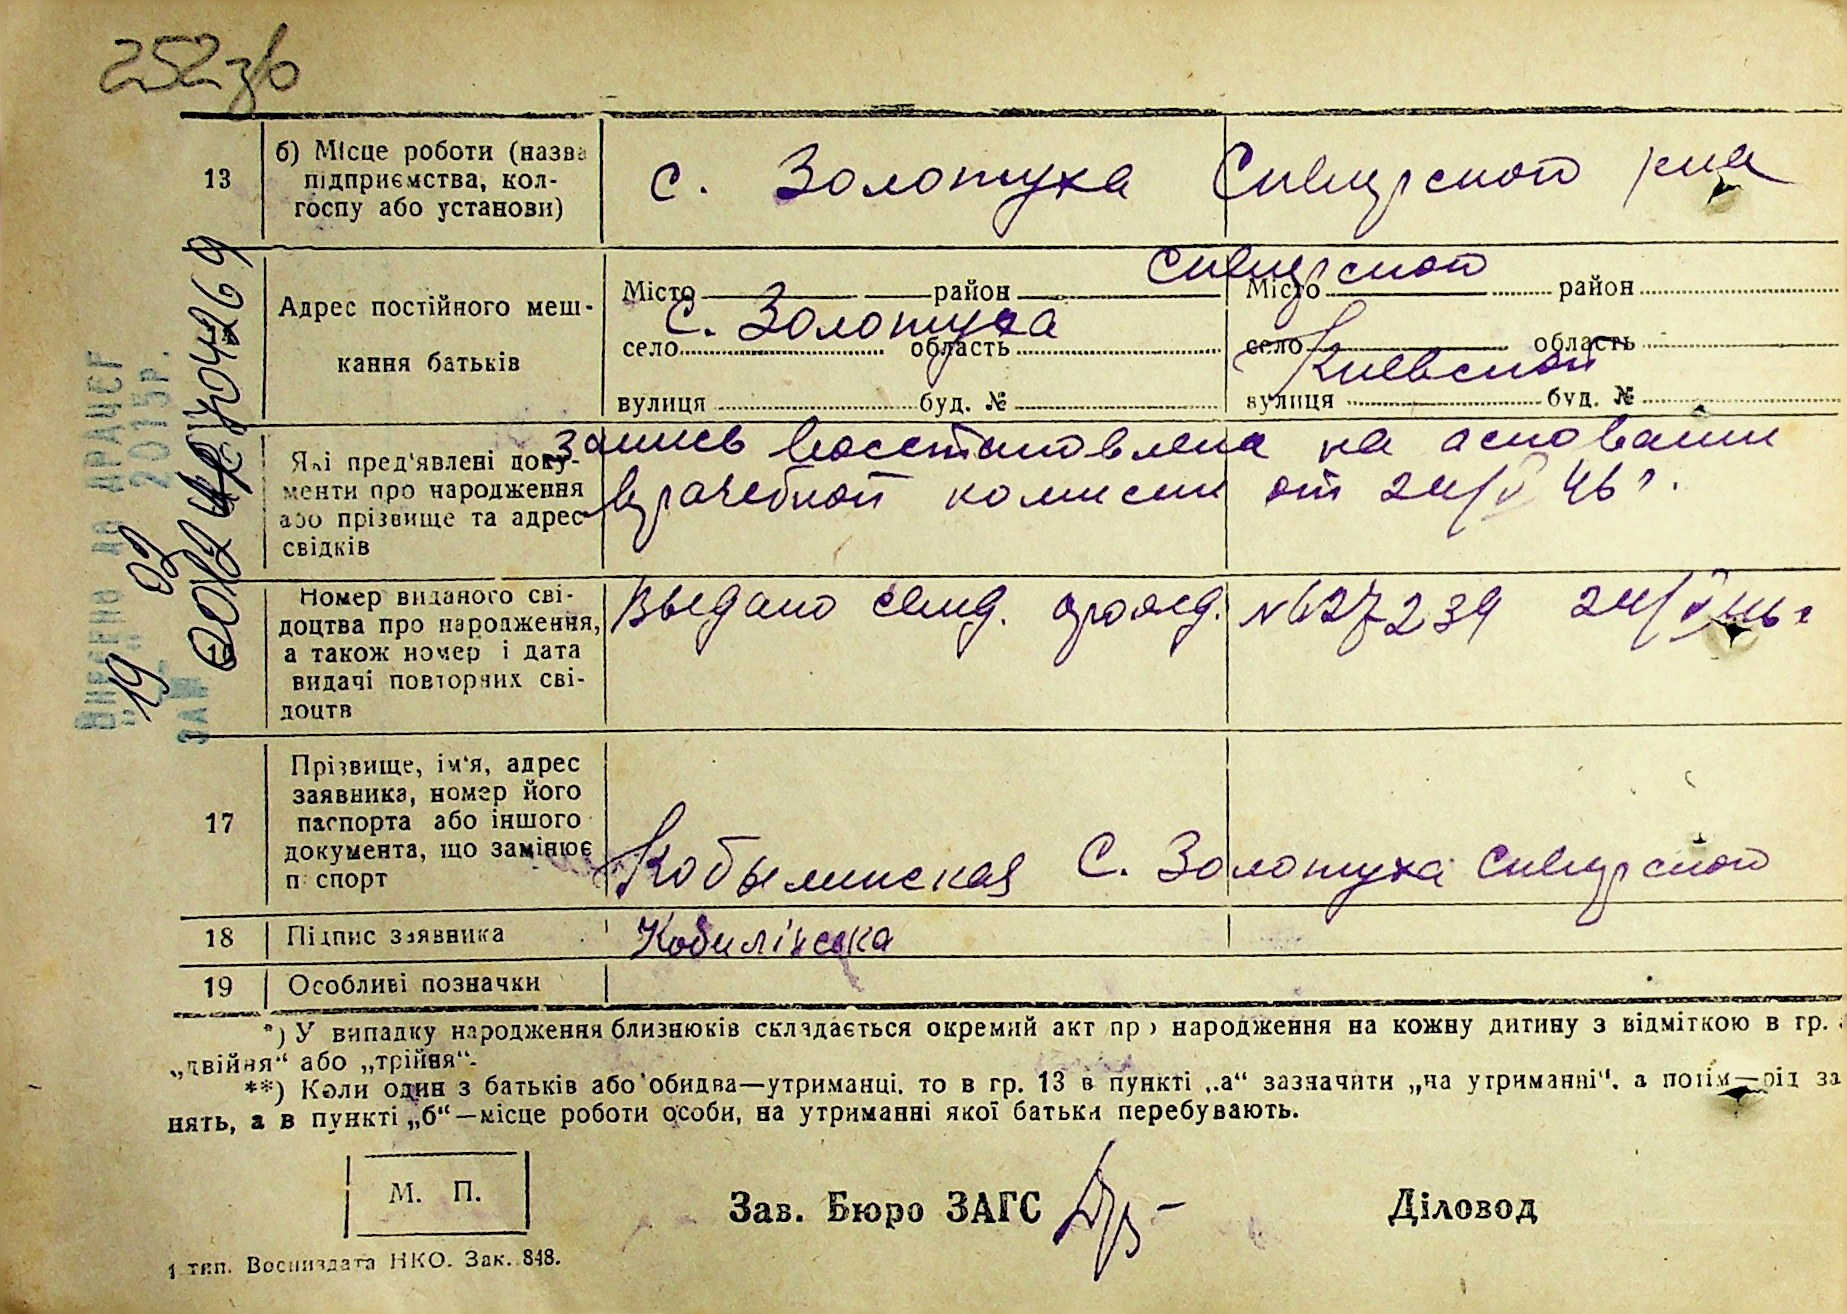 252зв
13
б) Місце роботи (назва
підприємства, кол-
госпу або установи)
с. Золотуха
Адрес постійного меш-
кання батьків
Місто район
с. Золотуха
село область
вулиця буд. №
Місто район
село область
Киевской
вулиця буд. №
Які пред'явлені доку-
менти про народження
або прізвище та адрес
свідків
запись восстановлена на основании
врачебной комиссии от 24/V 46 г.
16
Номер виданого сві-
доцтва про народження,
а також номер і дата
видачі повторних сві-
доцтв
Выдано свид. №27239 24/V 46 г
17
Прізвище, ім'я, адрес
заявника, номер його
паспорта або іншого
документа, що замінює
п спорт
Кобылинская С. Золотуха
18
Підпис заявника
Кобилінська
19
Особливі позначки
*) У випадку народження близнюків складається окремий акт про народження на кожну дитину з відміткою в гр.
„двійня“ або „трійня“.
**) Коли один з батьків або обидва—утриманці, то в гр. 13 в пункті „а“ зазначити „на утриманні“, а потім—рід за
нять, а в пункті „б“—місце роботи особи, на утриманні якої батьки перебувають.
М. П.
Зав. Бюро ЗАГС
Діловод
1 тип. Воениздата НКО. Зак. 848.
Внесено до ДРАЦСГ
19 02 2015р.